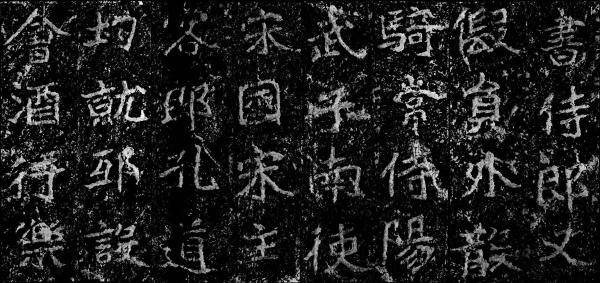 書侍郎又
假員外散
騎常侍陽
武子南使
宋國宋主
客郎孔道
均就邸設
會酒行樂